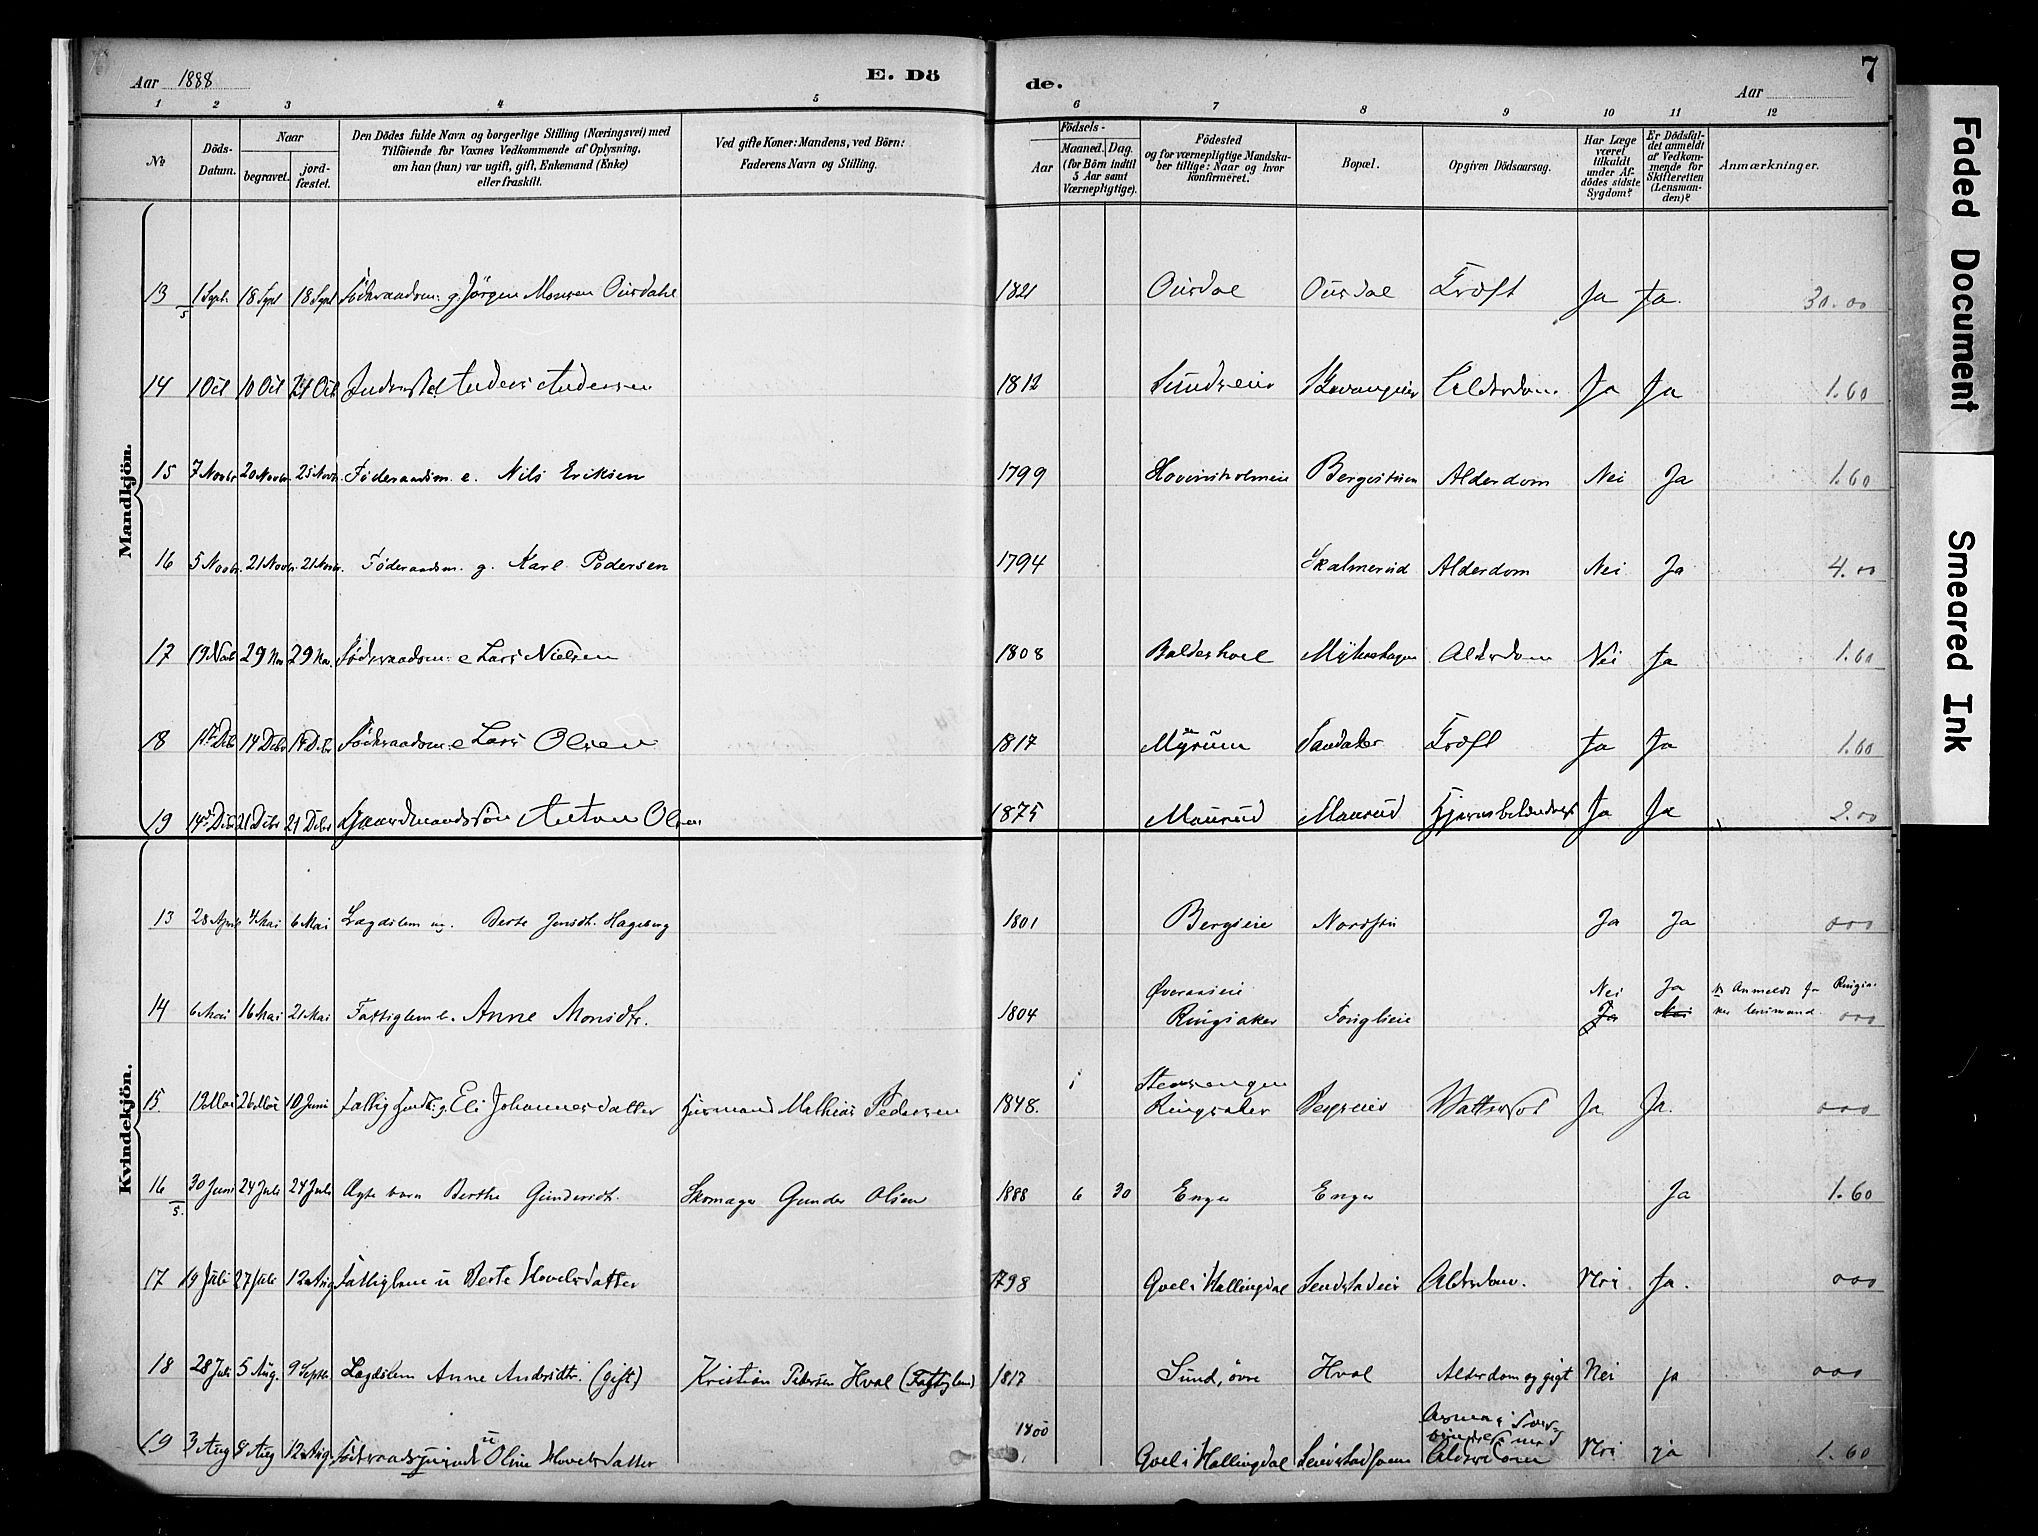 Aar 1888
E. Dö
de.
Aar
7
1 2 3 4 5 6 7 8 9 10 11 12
№
Döds-Datum.
Naar
begravet.
jord-fæstet.
Den Dödes fulde Navn og borgerlige Stilling (Næringsvei) med
Tilföiende for Voxnes Vedkommende af Oplysning,
om han (hun) var ugift, gift, Enkemand (Enke)
eller fraskilt.
Ved gifte Koner: Mandens, ved Börn:
Faderens Navn og Stilling.
Födsels-
Aar
Maaned. Dag.
(for Börn indtil
5 Aar samt
Værnepligtige).
Födested
og for værnepligtige Mandska-
ber tillige: Naar og hvor
konfirmeret.
Bopæl.
Opgiven Dödsaarsag.
Har Læge
været
tilkaldt
under Af-
dödes sidste
Sygdom?
Er Dödsfal-
det anmeldt
af Vedkom-
mende for
Skifteretten
(Lensman-
den)?
Anmærkninger.
Mandkjön.
13 1 Sept. 18 Sept 18 Sept g. Jörgen Monsen Ousdahl 1821 Ousdal Ousdal Kræft Ja Ja. 30.00
5
14 1 Oct 10 Oct 21 Oct Anders Andersen 1812 Sundseie Alderdom. Ja Ja 1.60
15 7 Novbr 20 Novbr. 25 Novbr. Föderaadsm. e. Nils Eriksen 1799 Hovinsholmeie Alderdom Nei Ja 1.60
16 5 Novbr. 21 Novbr. 21 Novbr. Föderaadsm. g. Karl Pedersen 1794 Skalmerud Alderdom Nei Ja 4.00
17 19 Nov 29 Nov 29 Nov. Föderaadsm. e Lars Nielsen 1808 Baldishoel Alderdom Nei Ja 1.60
18 14 Debr 19 Debr Föderaadsm. e Lars Olsen 1817 Myrum Sandaker Kræft Ja Ja 1.60
19 14 21 Debr 21 Debr Gaardmandssön Anton Olsen 1875 Maurud Maurud Ja Ja 2.00
Kvindekjön.
13 28 April 4 Mai 6 Mai Lægdslem ug. Berte Jensdt. Hageberg 1801 Bergseie Ja Ja 000
14 6 Mai 16 Mai 21 Mai Fattiglem e. Anne Monsdtr. 1804 Øveraaseie Ringsaker Nei Ja Ja Nei Anmeldt for Ringsa-
ker lensmand. 000
15. 19 Mai 26 Mai 10 Juni g. Eli Johannesdatter Husmand Mathias Pedersen 1848. Stensengen Ringsaker Bergseie Vattersot Ja Ja. 000
16 30 Juni 24 Juli 24 Juli Ægte barn Berthe Gundersdt. Skomager Gunder Olsen 1888 6 30 Enger Enger Ja 1.60
5.
17 19 Juli 27 Juli 12 Aug Fattiglem u Berte Hovelsdatter 1798 Goel i Hallingdal Alderdom. Nei. Ja. 000
18 28 Juli 5 Aug. 9 Septbr. Lægdslem Anne Andersdtr. (gift) Kristian Pedersen Hval (Fattiglem) 1817 Sund, övre Hval Alderdom og gigt Nei ja 000
19 3 Aug 8 Aug 12 Aug. u Oline Hovelsdatter 1800 Goel i Hallingdal Alderdom Nei ja 1.60
Faded Document
Smeared Ink